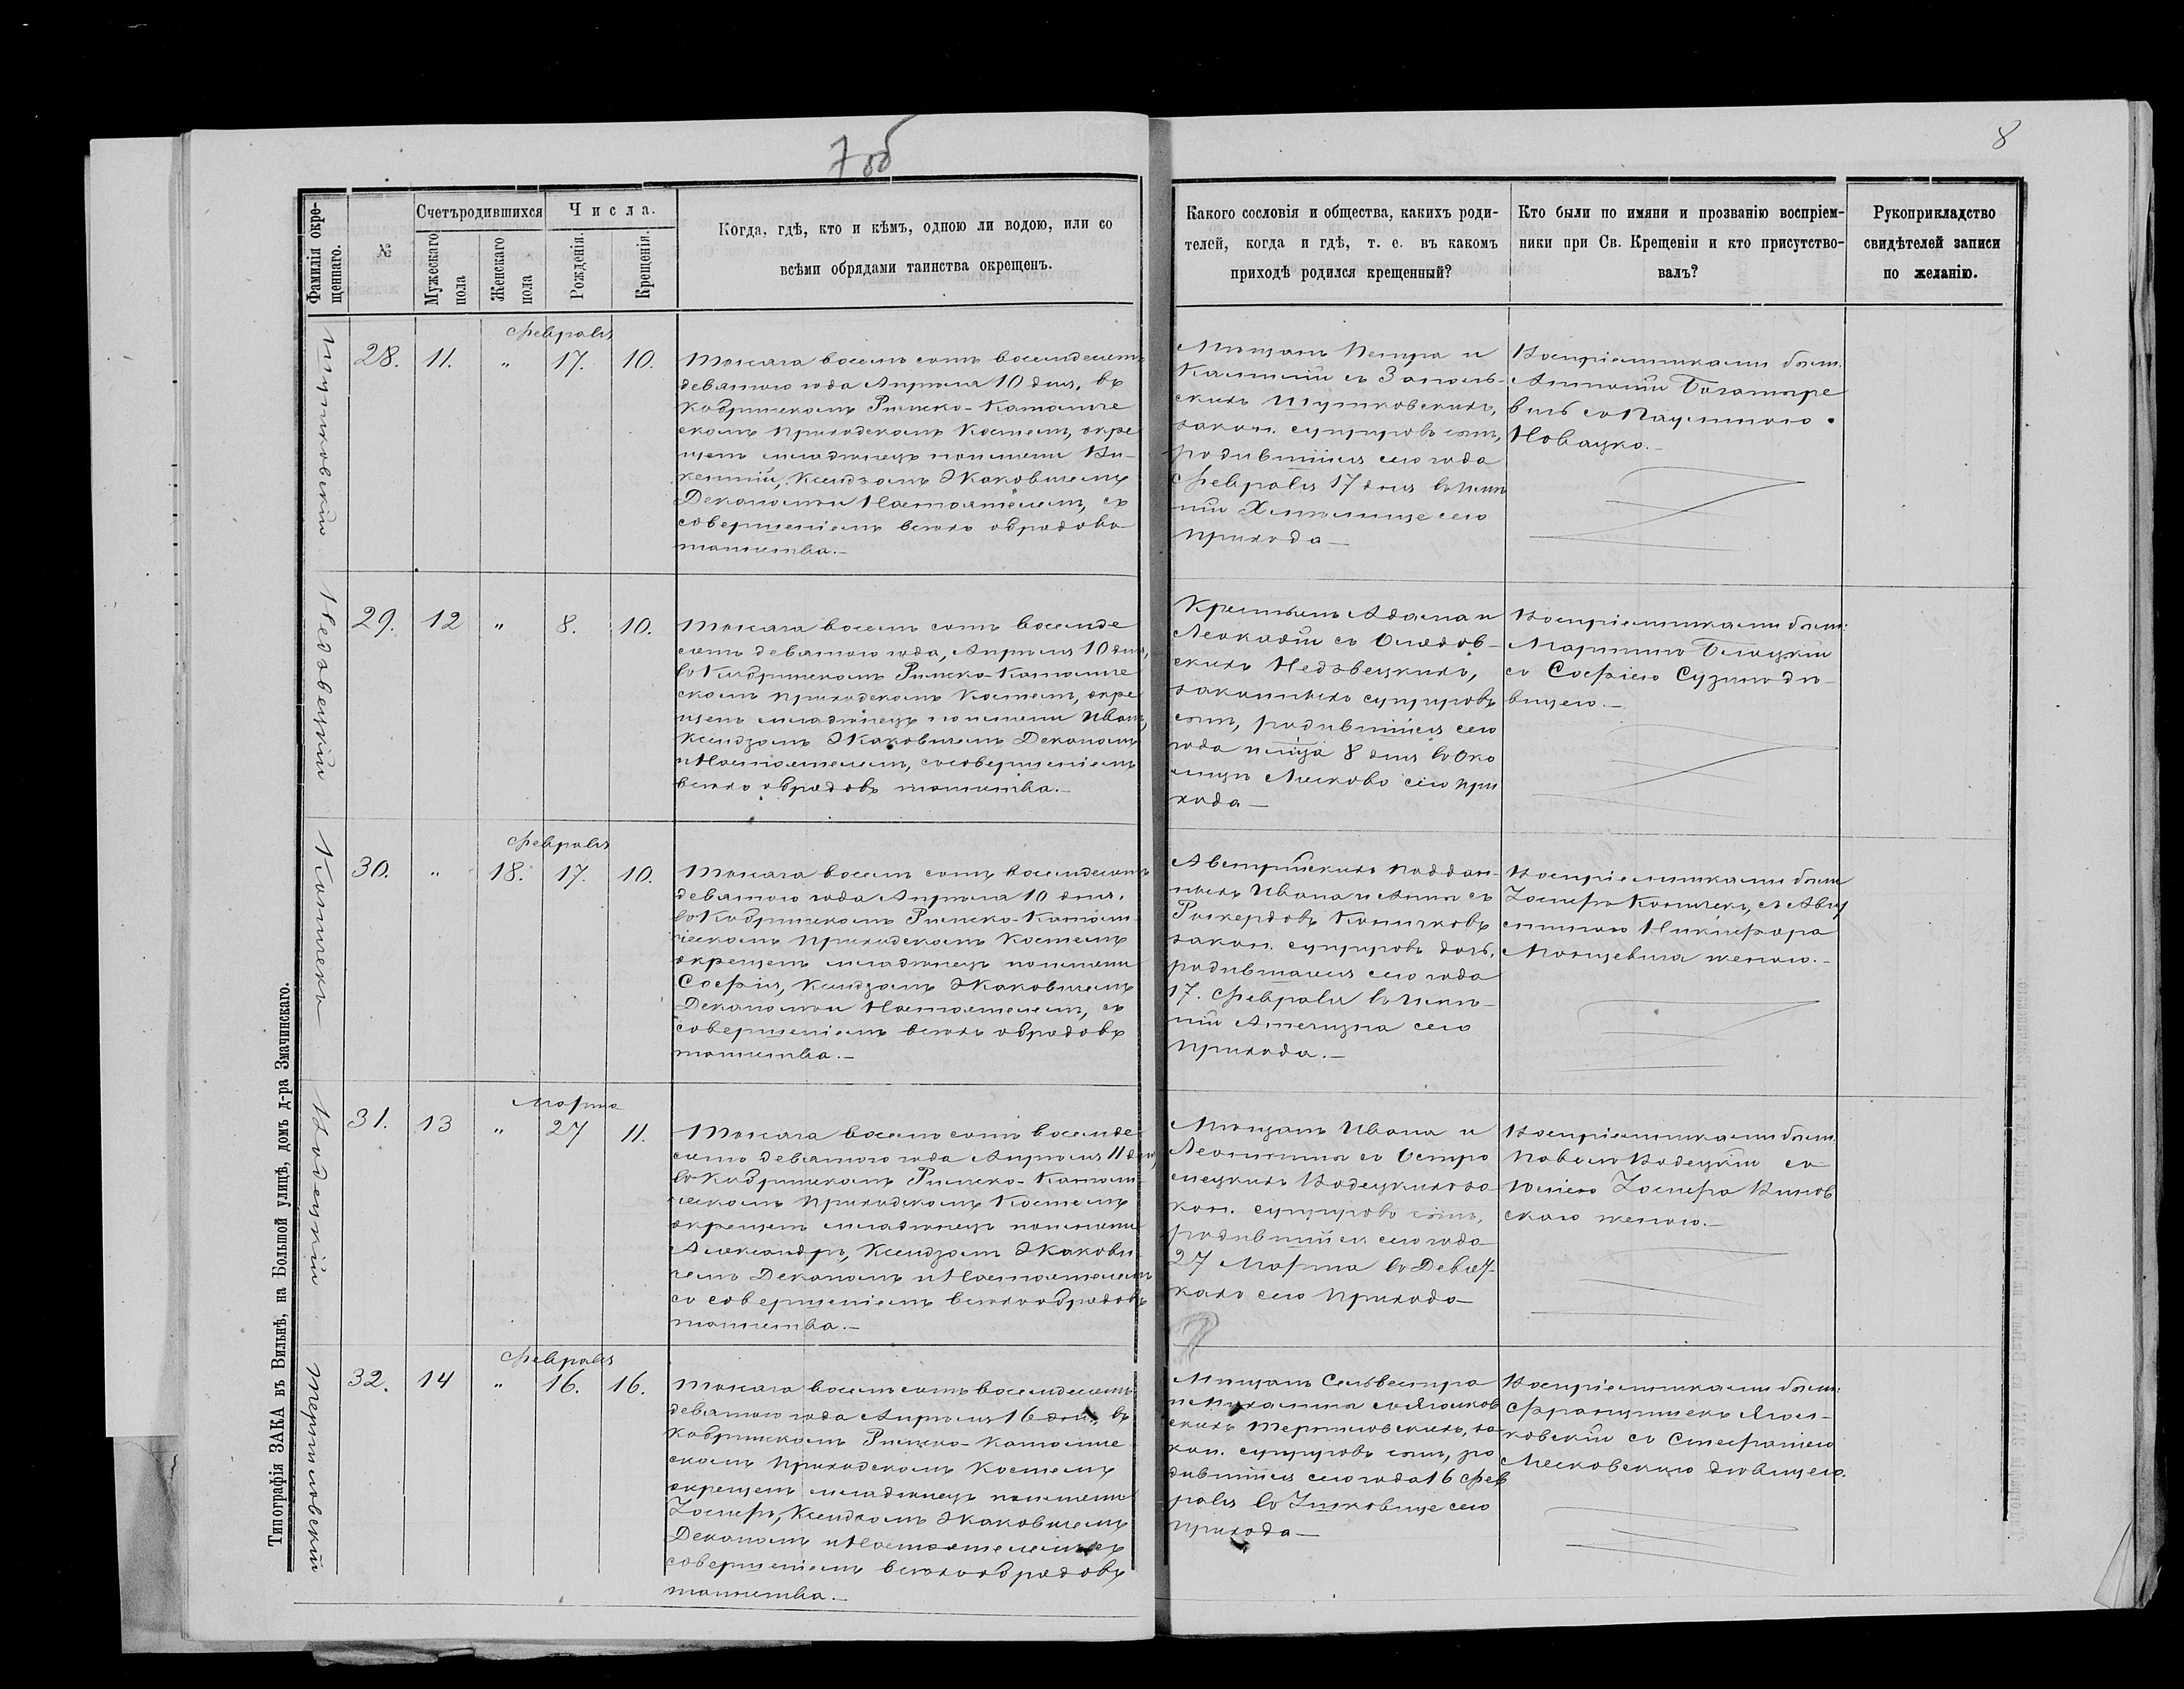 7 об
8
Фамилія окрещеннаго.
№
Счетъ родившихся
Мужескаго пола
Женскаго пола
Числа.
Рожденія.
Крещенія.
Когда, гдѣ, кто и кѣмъ, одною ли водою, или со
всѣми обрядами таинства окрещенъ.
Какого сословія и общества, какихъ роди-
телей, когда и гдѣ, т. е. въ какомъ
приходѣ родился крещенный?
Кто были по имяни и прозванію воспріем-
ники при Св. Крещеніи и кто присутство-
валъ?
Рукоприкладство
свидѣтелей записи
по желанію.
Типографія ЗАКА въ Вильнѣ, на Большой улицѣ, домъ д-ра Змачинскаго.
Февраля
28. 11. " 17. 10.
Тысяча восемь сотъ восемдесятъ
девятого года Апрѣля 10 дня, въ
Кобринскомъ Римско-Католиче
скомъ Приходскомъ Костелѣ, окре
щенъ младенецъ по имени Ви-
кентій, Ксендзомъ Жаковичемъ
Деканомъ и Настоятелемъ, съ
совершеніемъ всѣхъ обрядовъ
таинства.-
Мѣщанъ Петра и
закон. супруговъ сынъ,
родившійся сего года
Февраля 17 дня въ имѣ
ніи сего
прихода-
Воспріемниками были:
Антоній
съ Паулиною
29. 12 " 8. 10.
Тысяча восемь сотъ восемде
сятъ девятого года, Апрѣля 10 дня,
въ Кобринскомъ Римско-Католиче
скомъ Приходскомъ Костелѣ, окре
щенъ младенецъ по имени Иванъ,
Ксендзомъ Жаковичемъ Деканомъ
и Настоятелемъ, съ совершеніемъ
всѣхъ обрядовъ таинства.-
Крестьянъ Адама и
Леокадіи съ
Недзвецкихъ,
законныхъ супруговъ
сынъ, родившійся сего
года 8 дня въ око
лицѣ Лысково сего при
хода-
Воспріемниками были:
Мартинъ
съ Софіею
Февраля
30. " 18. 17. 10.
Тысяча восемь сотъ восемдесятъ
девятого года Апрѣля 10 дня,
въ Кобринскомъ Римско-Католи
ческомъ Приходскомъ Костелѣ
окрещенъ младенецъ по имени
Софія, Ксендзомъ Жаковичемъ
Деканомъ и Настоятелемъ, съ
совершеніемъ всѣхъ обрядовъ
таинства.-
Австрійскихъ поддан-
ныхъ Ивана и Анны съ
закон. супруговъ дочь,
родившаяся сего года
17. Февраля въ имѣ-
ніи сего
прихода.-
Воспріемниками были
Іосифъ съ Авгу
стиною Никифора
женою.-
Марта
31. 13 " 27 11.
Тысяча восемь сотъ восемде
сятъ девятого года Апрѣля 11 дня,
въ Кобринскомъ Римско-Католи
ческомъ Приходскомъ Костелѣ
окрещенъ младенецъ по имени
Александръ, Ксендзомъ Жакови
чемъ Деканомъ и Настоятелемъ
со совершеніемъ всѣхъ обрядовъ
таинства.-
Мѣщанъ Ивана и
Водецкихъ за
кон. супруговъ сынъ,
родившійся сего года
27 Марта въ
сего прихода-
Воспріемниками были
Павелъ Водецкій съ
Іосифа
женою.-
Водецкій
Февраля
32. 14 " 16. 16.
Тысяча восемь сотъ восемдесятъ
девятого года Апрѣля 16 дня, въ
Кобринскомъ Римско-Католиче
скомъ Приходскомъ Костелѣ
окрещенъ младенецъ по имени
Іосифъ, Ксендзомъ Жаковичемъ
Деканомъ и Настоятелемъ съ
совершеніемъ всѣхъ обрядовъ
таинства.-
Мѣщанъ Сельвестра
за
кон. супруговъ сынъ, ро
дившійся сего года 16 Фев
раля въ сего
прихода-
Воспріемниками были:
Францишекъ
съ Стефаніею
дѣвицею.